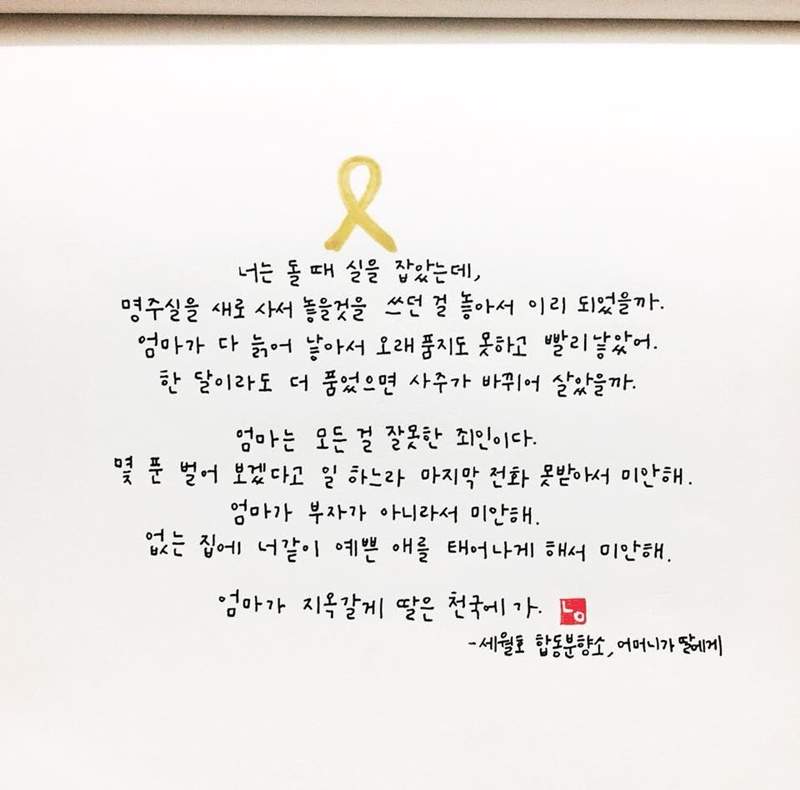 너는 돌 때 실을 잡았는데,
명주실을 새로 사서 놓을것을 쓰던 걸 놓아서 이리 되었을까.
엄마가 다 늙어 낳아서 오래 품지도 못하고 빨리 낳았어.
한 달이라도 더 품었으면 사주가 바뀌어 살았을까.
엄마는 모든 걸 잘못한 죄인이다.
몇 푼 벌어 보겠다고 일 하느라 마지막 전화 못받아서 미안해.
엄마가 부자가 아니라서 미안해.
없는 집에 너같이 예쁜 애를 태어나게 해서 미안해.
엄마가 지옥갈게 딸은 천국에 가.
-세월호 합동분향소, 어머니가 딸에게